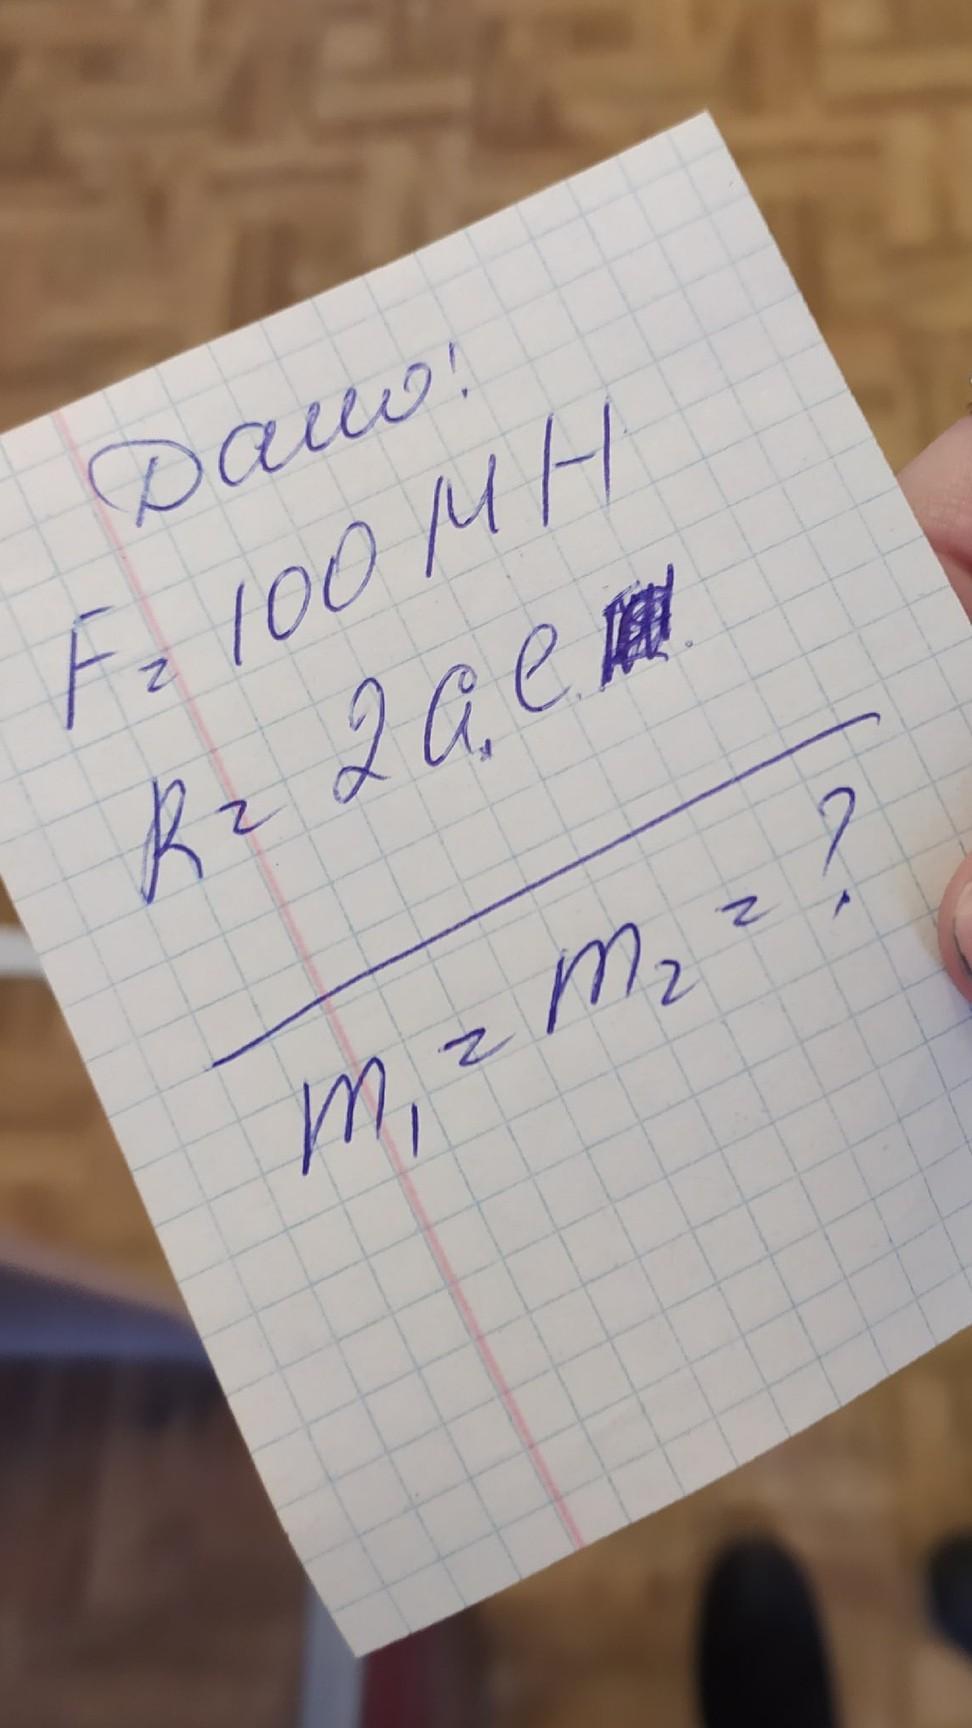 Дано!
F = 100 мН
R = 2 а.е.
m₁ = m₂ = ?